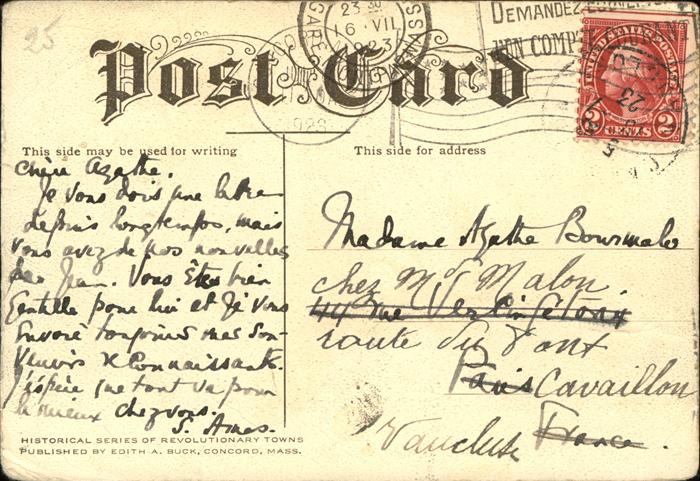 25
Post Card
23 30
16·VII
1923
GARE
MASS
DEMANDEZ
UNITED STATES POSTAGE
2 CENTS 2
This side may be used for writing
This side for address
Chère Agathe.
Je vous dois une lettre
depuis longtemps, mais
vous avez de nos nouvelles
par Jean. Vous êtes bien
gentille pour lui et je vous
envoie toujours mes sou-
venirs reconnaissants.
J'espère que tout va pour
le mieux chez vous.
S. Ames.
Madame Agathe
chez Mr Malon.
44 rue Vercingétorix
route du Pont
Paris Cavaillon
Vaucluse France.
HISTORICAL SERIES OF REVOLUTIONARY TOWNS
PUBLISHED BY EDITH A. BUCK, CONCORD, MASS.